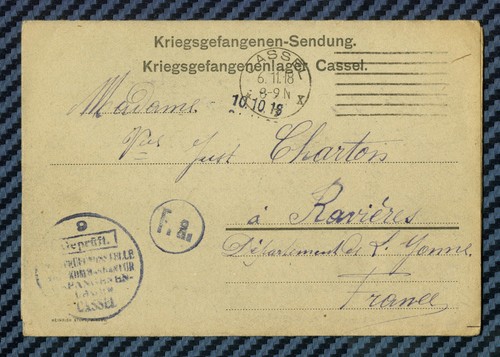 Kriegsgefangenen-Sendung.
Kriegsgefangenenlager Cassel.
CASSEL
6.11.18
8-9 N
10.10.18
Madame
Vve Just Charton
à Ravières
Département de L'Yonne
France
F.a.
9
Geprüft.
CASSEL